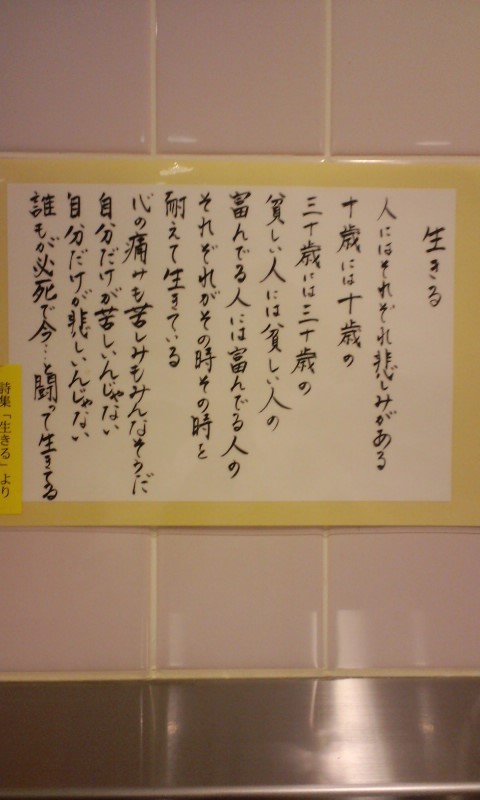 生きる
人にはそれぞれ悲しみがある
十歳には十歳の
三十歳には三十歳の
貧しい人には貧しい人の
富んでる人には富んでる人の
それぞれがその時その時と
耐えて生きている
心の痛みも苦しみもみんなそうだ
自分だけが苦しいんじゃない
自分だけが悲しいんじゃない
誰もが必死で今…と闘って生きてる
詩集「生きる」より